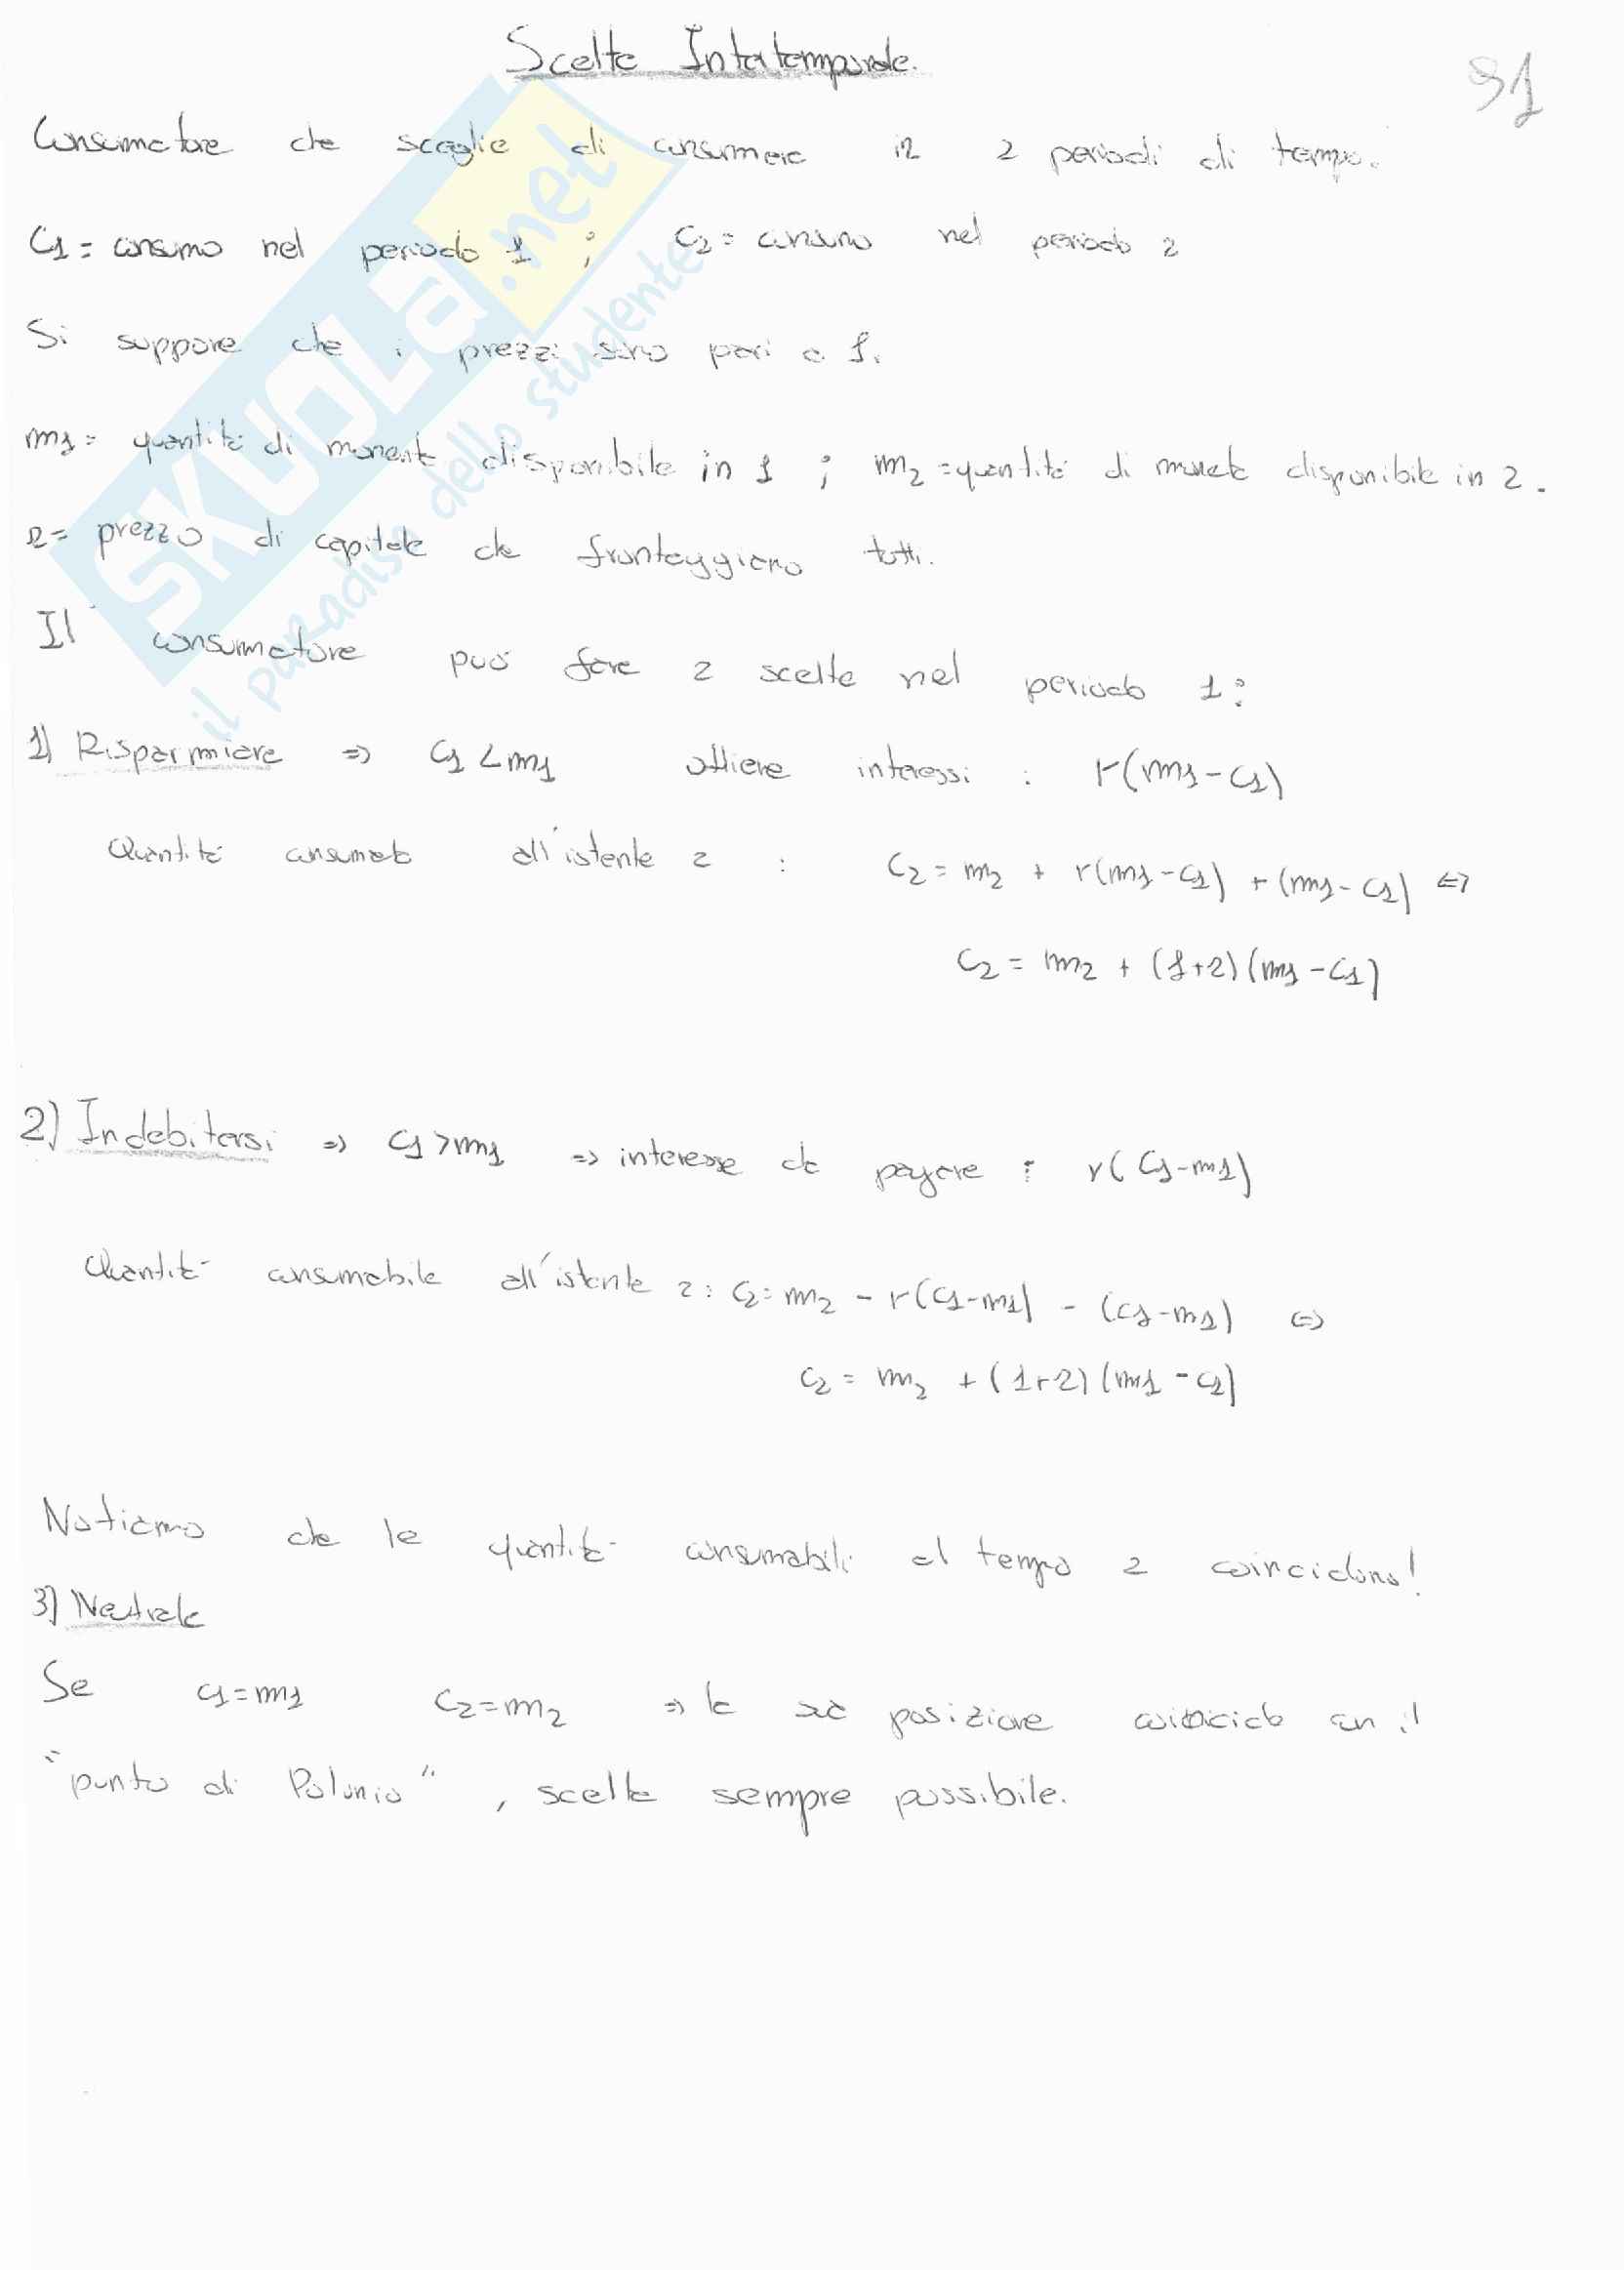 Scelte Intertemporale.
91
Consumatore che sceglie di consumare in 2 periodi di tempo.
C1 = consumo nel periodo 1 ; C2 = consumo nel periodo 2
Si suppone che i prezzi siano pari a 1.
m1 = quantità di moneta disponibile in 1 ; m2 = quantità di moneta disponibile in 2.
r = prezzo di capitale che fronteggiano tutti.
Il consumatore può fare 2 scelte nel periodo 1:
1) Risparmiare => C1 < m1 ottiene interessi : r(m1-C1)
Quantità consumata all'istante 2 : C2 = m2 + r(m1-C1) + (m1-C1) <=>
C2 = m2 + (1+r)(m1-C1)
2) Indebitarsi => C1 > m1 => interesse da pagare : r(C1-m1)
Quantità consumabile all'istante 2: C2 = m2 - r(C1-m1) - (C1-m1) <=>
C2 = m2 + (1+r)(m1-C1)
Notiamo che le quantità consumabili al tempo 2 coincidono!
3) Neutrale
Se C1=m1 C2=m2 => la sua posizione coincide con il
"punto di Polonio", scelta sempre possibile.
SKUOLA.net
il paradiso dello studente